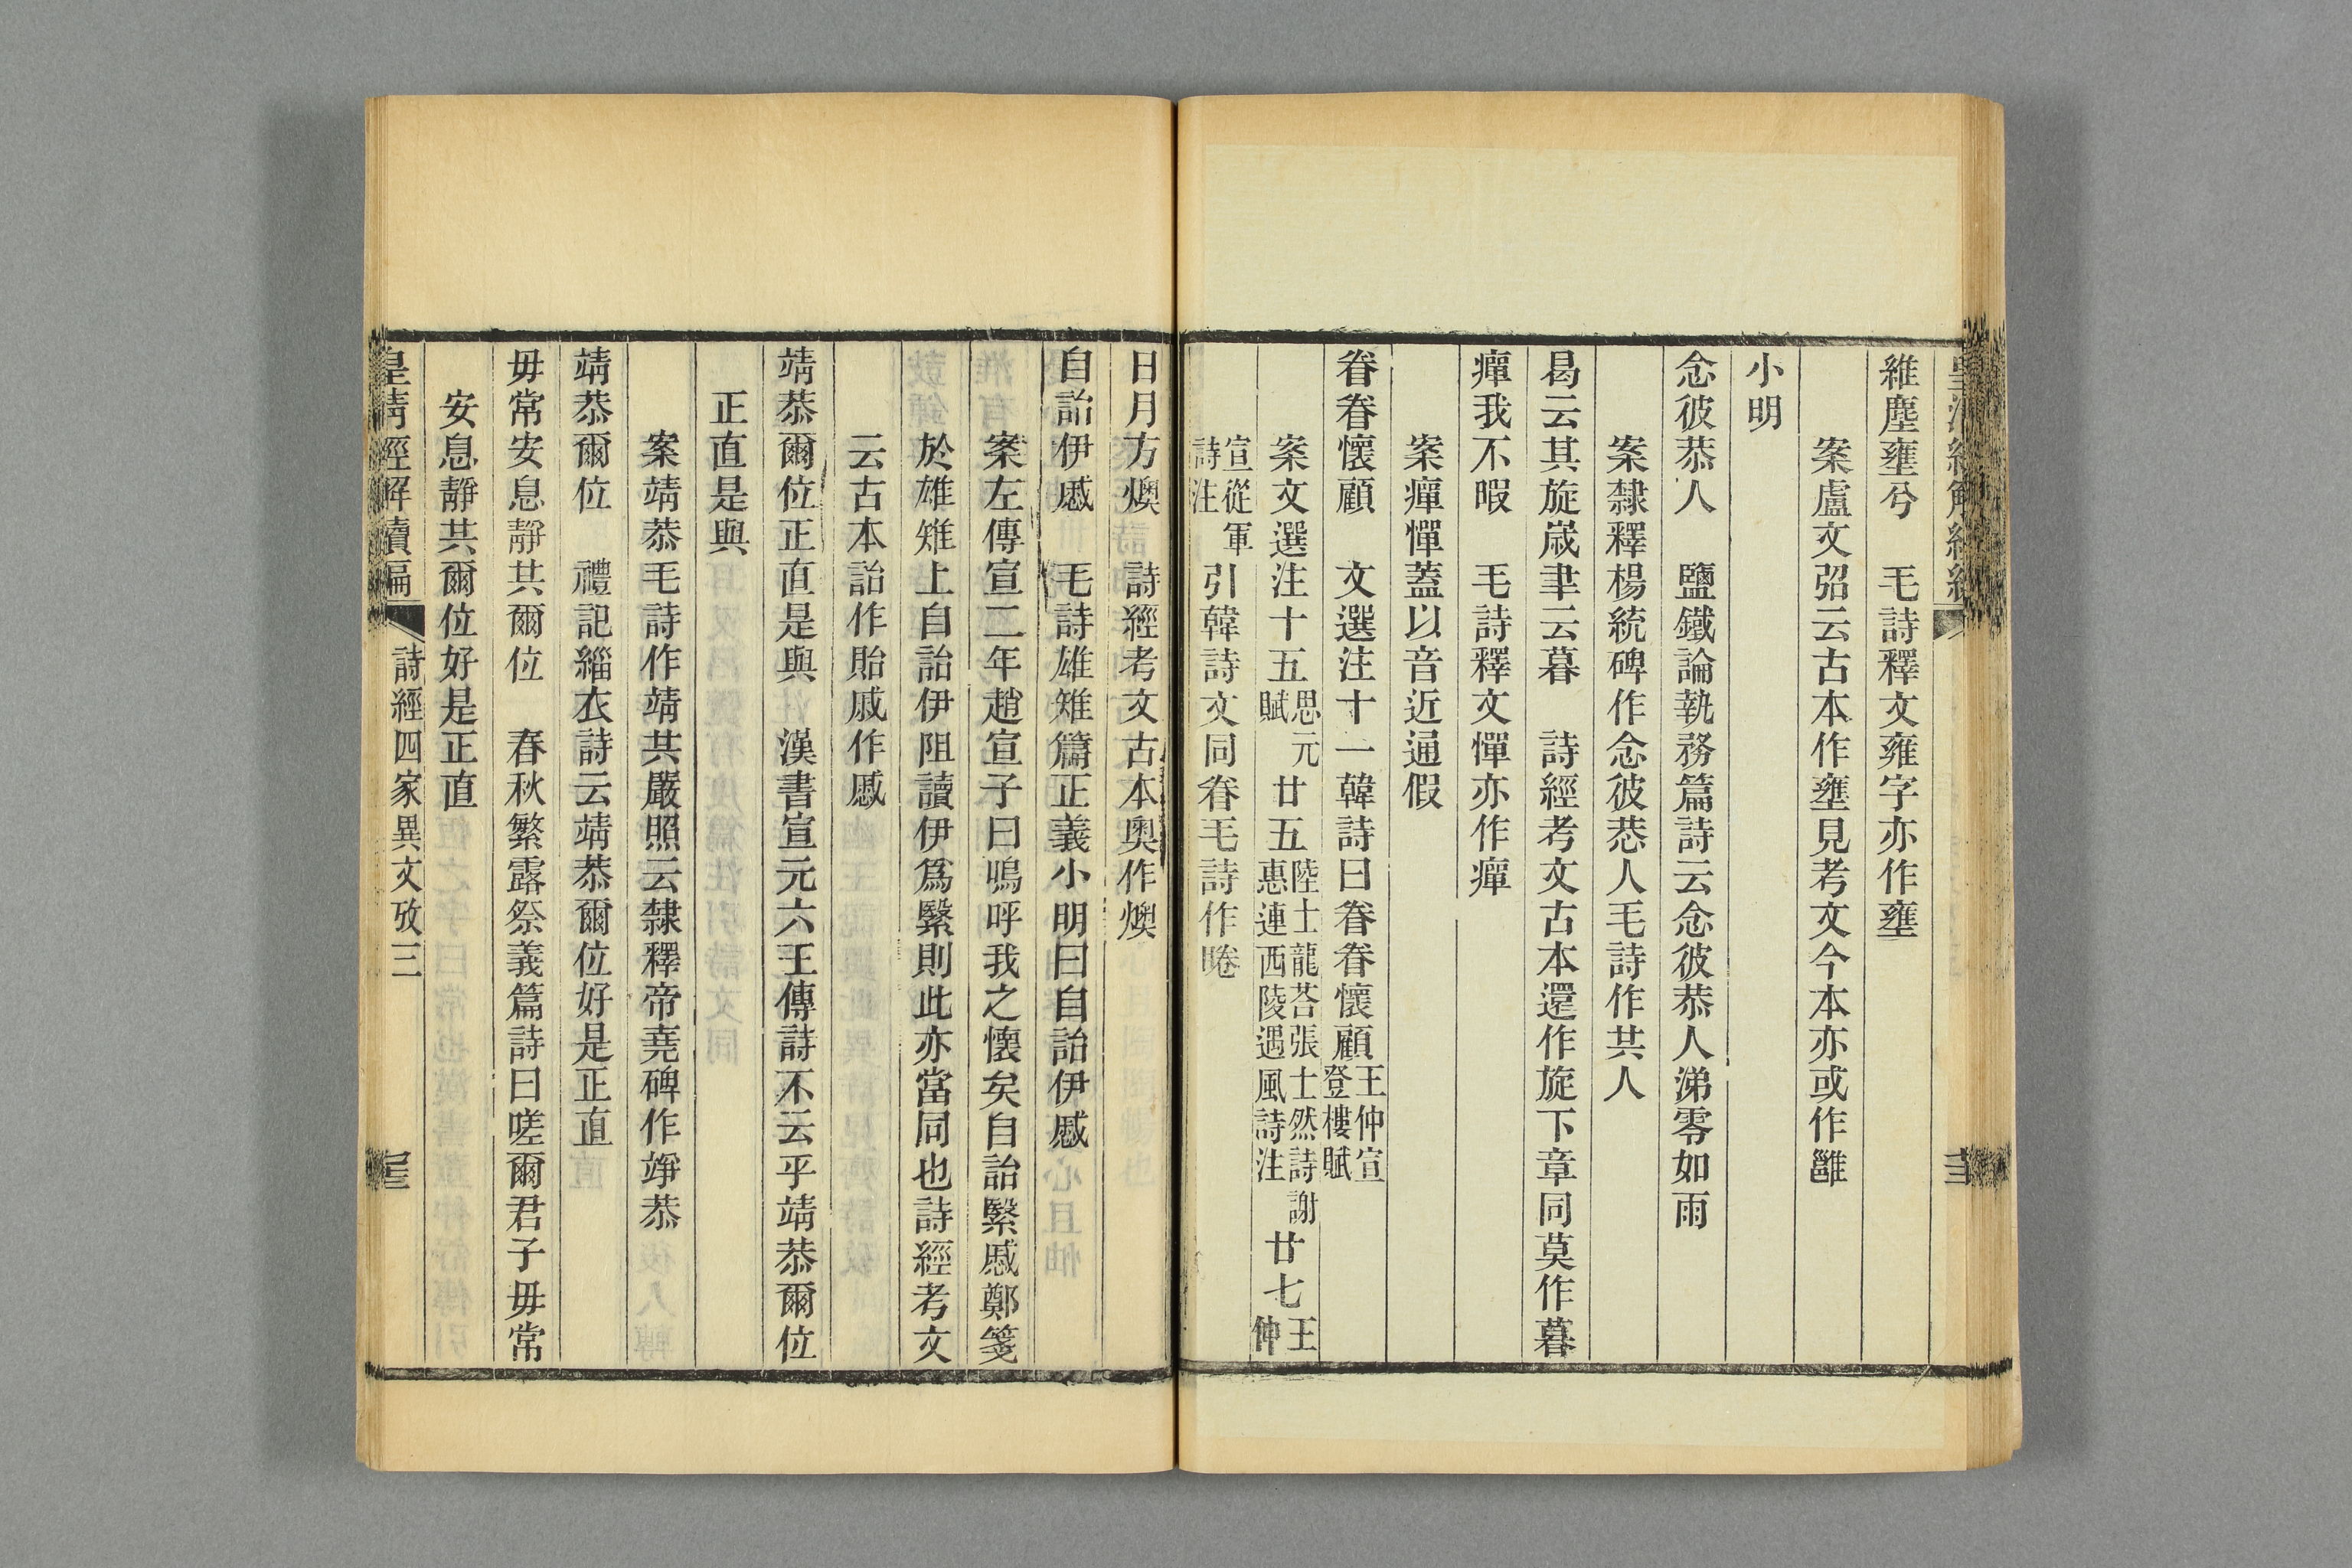 維塵壅兮　毛詩釋文雍字亦作壅
案盧文弨云古本作壅見考文今本亦或作雝
小明
念彼恭人　鹽鐵論執務篇詩云念彼恭人涕零如雨
案隸釋楊統碑作念彼恭人毛詩作共人
曷云其旋歲聿云暮　詩經考文古本還作旋下章同莫作暮
癉我不暇　毛詩釋文憚亦作癉
案癉憚蓋以音近通假
眷眷懷顧　文選注十一韓詩曰眷眷懷顧王仲宣登樓賦
案文選注十五思元賦廿五陸士龍荅張士然詩謝惠連西陵遇風詩注廿七王仲
宣從軍詩注引韓詩文同眷毛詩作睠
日月方燠　詩經考文古本奧作燠
自詒伊慼　毛詩雄雉篇正義小明曰自詒伊慼
案左傳宣二年趙宣子曰嗚呼我之懷矣自詒緊慼鄭箋
於雄雉上自詒伊阻讀伊爲緊則此亦當同也詩經考文
云古本詒作貽戚作慼
靖恭爾位正直是與　漢書宣元六王傳詩不云乎靖恭爾位
正直是與
案靖恭毛詩作靖共嚴照云隸釋帝堯碑作竫恭
靖恭爾位　禮記緇衣詩云靖恭爾位好是正直
毋常安息靜共爾位　春秋繁露祭義篇詩曰嗟爾君子毋常
安息靜共爾位好是正直
皇清經解續編　詩經四家異文攷三